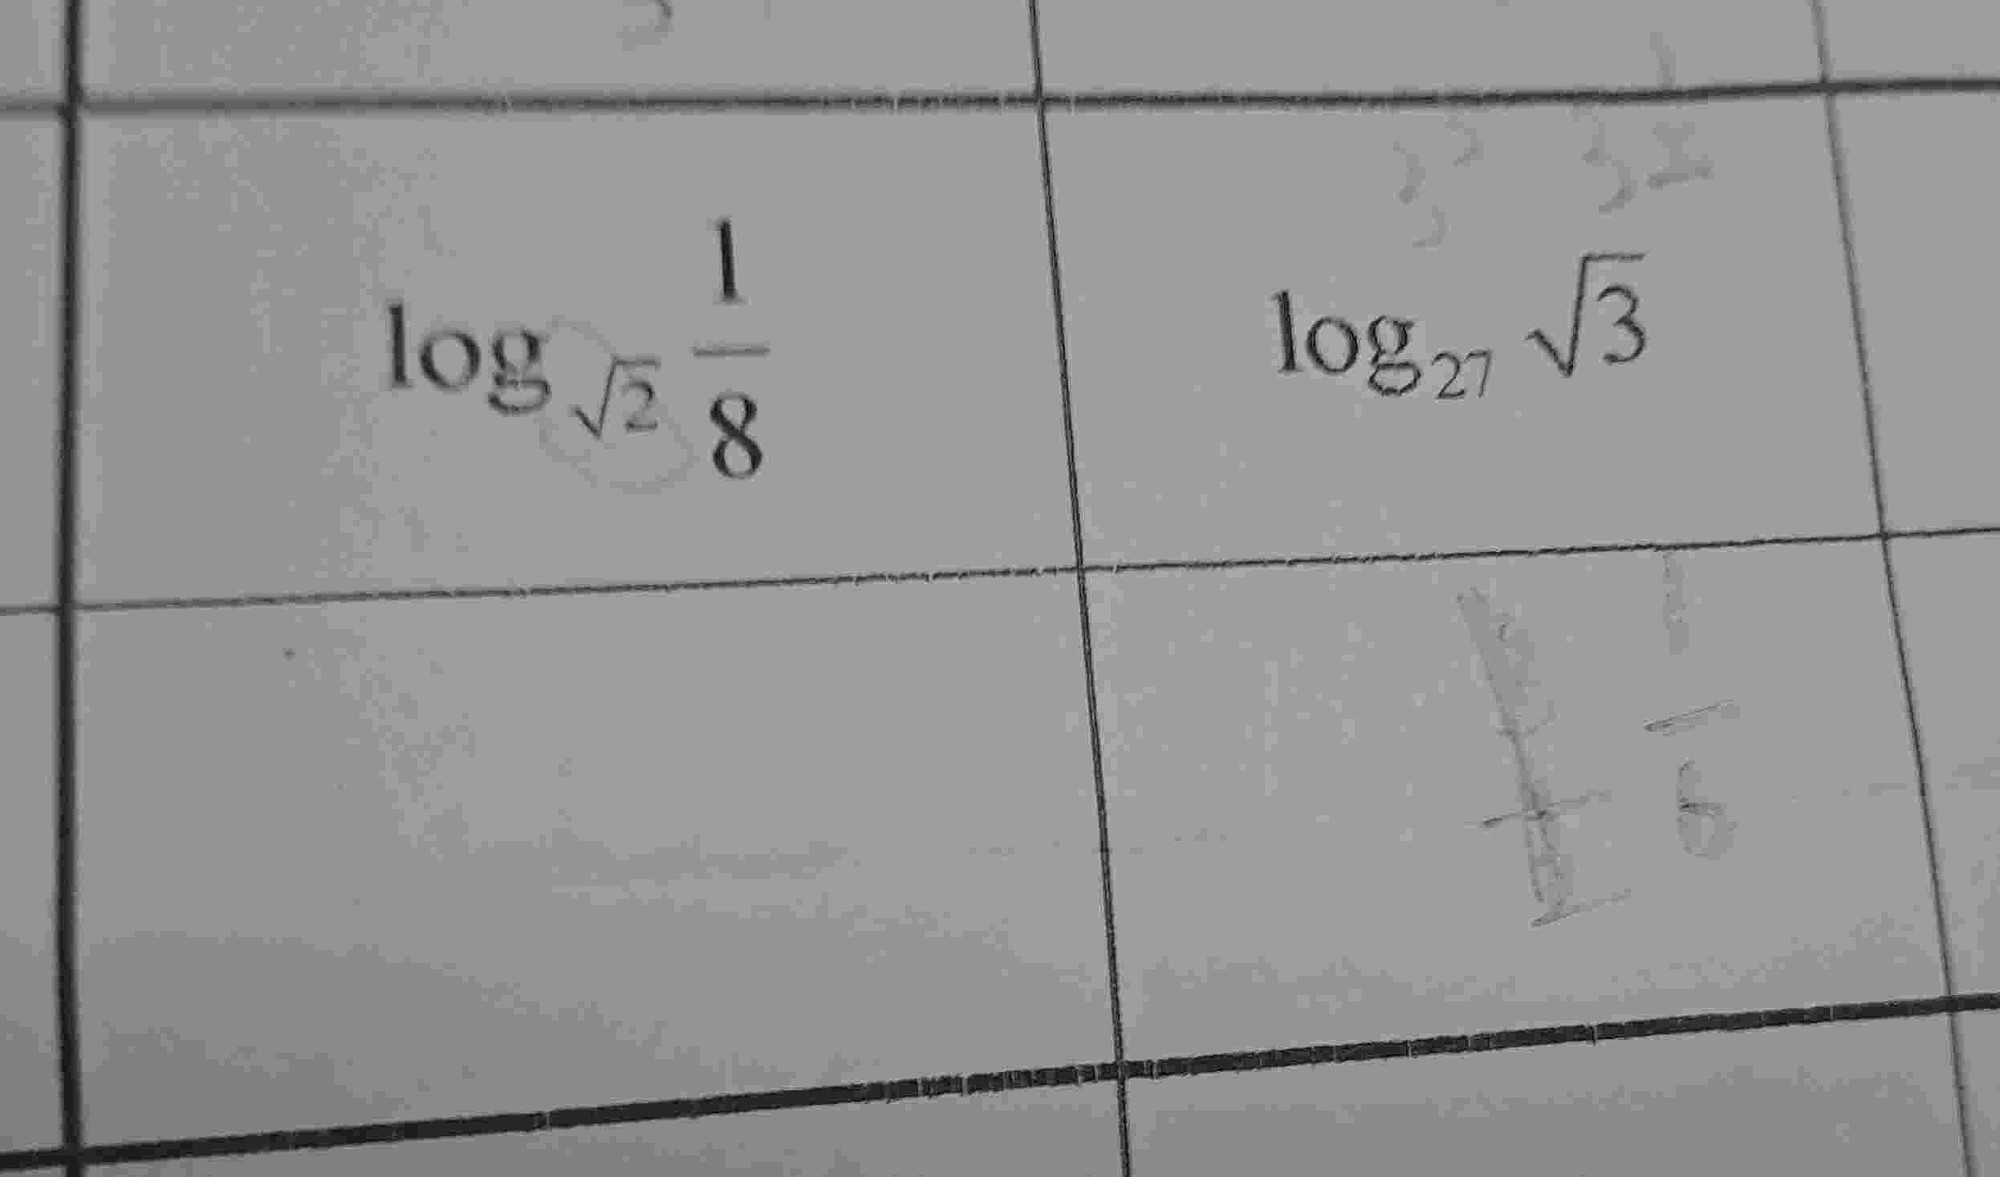 log_{√2} 1/8
log_{27} √3
1/6